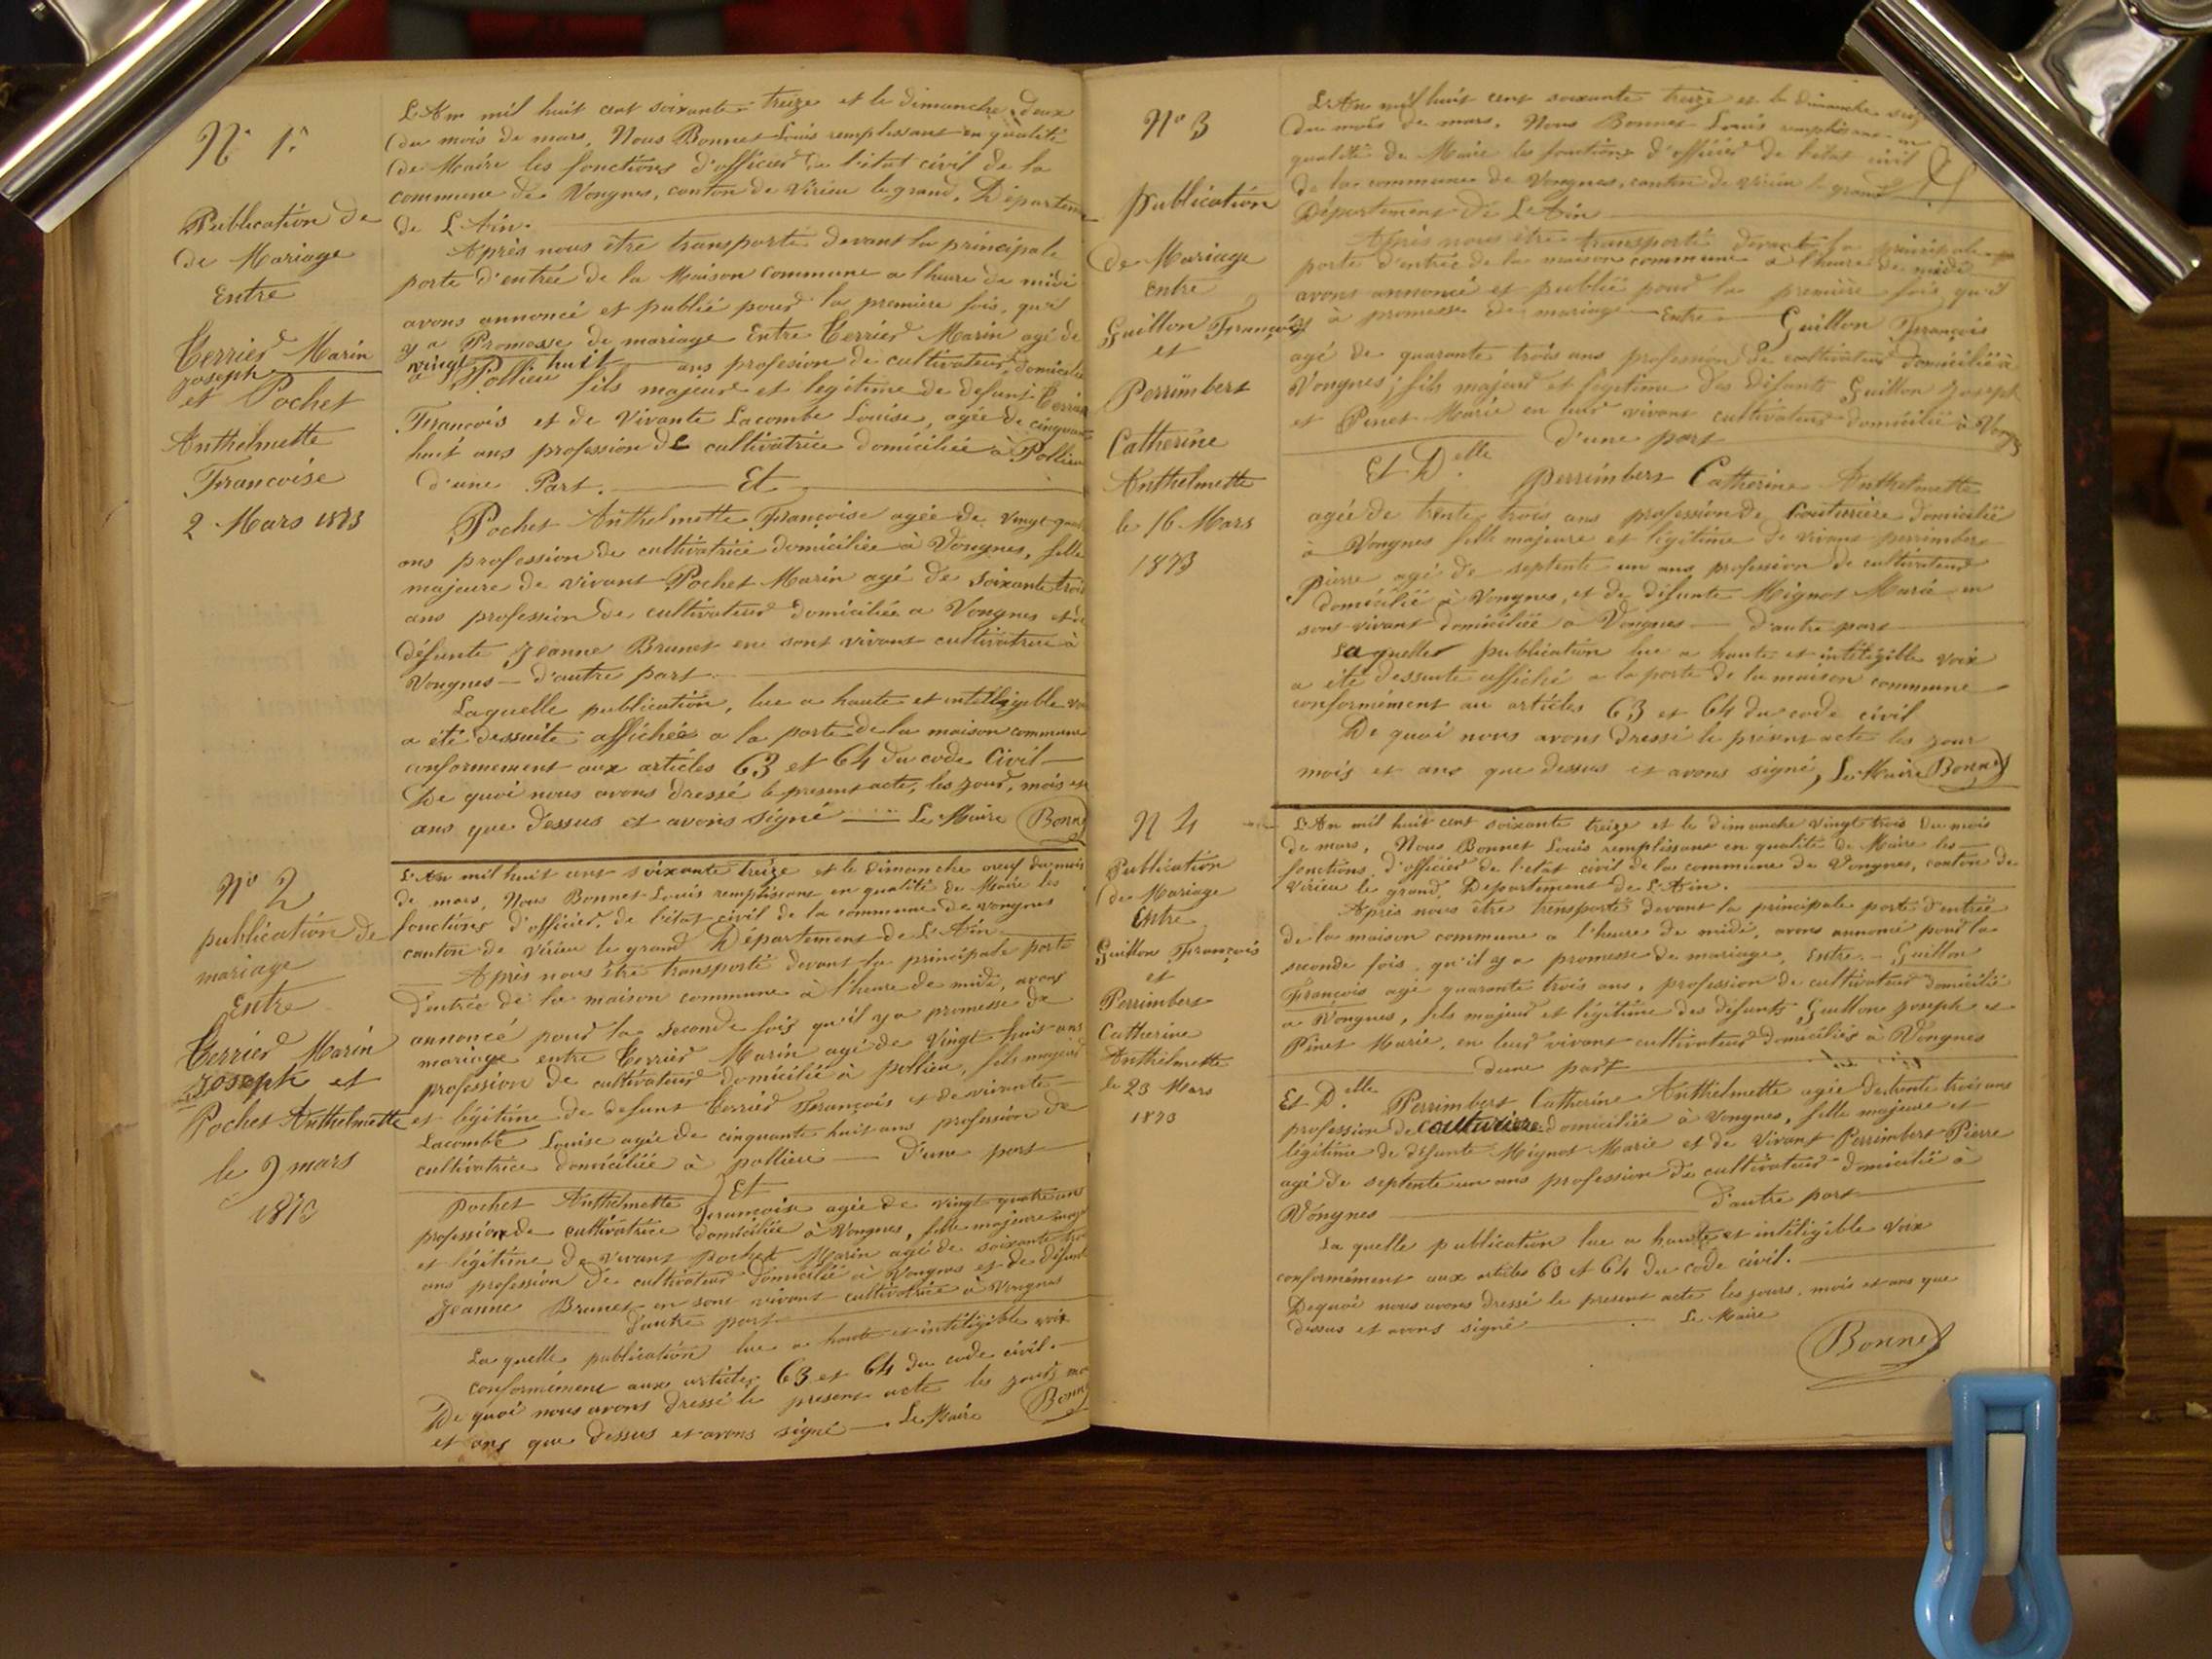 N° 1er
Publication de
de Mariage
Entre
Terrier Marin
Joseph
et Pochet
Anthelmette
Francoise
2 Mars 1873
L'An mil huit cent soixante treize et le dimanche deux
du mois de mars, Nous Bonnet Louis remplissant en qualité
de Maire les fonctions d'officier de l'état civil de la
commune de Vongnes, canton de Virieu le grand, Départeme
de L'Ain.
Après nous être transporté devant la principale
porte d'entrée de la Maison Commune a l'heure de midi
avons annoncé et publié pour la première fois, qu'il
y a Promesse de mariage Entre Terrier Marin agé de
vingt huit ans profession de cultivateur, domicilié
à Pollieu fils majeur et legitime de defunt Terrier
François et de Vivante Lacombe Louise, agée de cinquante
huit ans profession de cultivatrice domiciliée à Pollieu
d'une Part. Et
Pochet Anthelmette Françoise agée de vingt quatre
ans profession de cultivatrice domiciliée à Vongnes, fille
majeure de vivant Pochet Marin agé de soixante trois
ans profession de cultivateur domiciliée a Vongnes et de
défunte Jeanne Brunet en sont vivant cultivatrice à
Vongnes - d'autre part
Laquelle publication, lue a haute et inteligible voi
a été dessuite affichée a la porte de la maison commune
conformement aux articles 63 et 64 du code Civil
De quoi nous avons dressé le present acte, les jour, mois et
ans que dessus et avons signé Le Maire Bonnet
N° 2
publication de
mariage
Entre
Terrier Marin
Joseph et
Pochet Anthelmette
le 9 mars
1873
L'An mil huit cent soixante treize et le dimanche neuf du mois
de mars, Nous Bonnet Louis remplissant en qualité de Maire les
fonctions d'officier de l'état civil de la commune de vongnes
canton de Virieu le grand Département de L'Ain
Après nous être transporté devant la principale porte
d'entrée de la maison commune à l'heure de midi, avons
annoncé pour la seconde fois qu'il y a promesse de
mariage entre Terrier Marin agé de vingt huit ans
profession de cultivateur domicilié à pollieu, fils majeur
et légitime de defunt Terrier François et de vivante
Lacombe Louise agée de cinquante huit ans profession de
cultivatrice domiciliée à pollieu - D'une part
Et
Pochet Anthelmette Francoise agée de vingt quatre ans
profession de cultivatrice domiciliée à Vongnes, fille majeure
et légitime de vivant Pochet Marin agé de soixante trois
ans profession de cultivateur domicilié à Vongnes et de défunte
Jeanne Brunet en sont vivant cultivatrice à Vongnes
d'autre part
La quelle publication lue a haute et inteligible voix
conformément aux articles 63 et 64 du code civil.
De quoi nous avons dressé le present acte les jours mo
et ans que dessus et avons signé - Le Maire Bonnet
N° 3
publication
de Mariage
entre
Guillon François
et
Perrimbert
Catherine
Anthelmette
le 16 Mars
1873
L'An mil huit cent soixante treize et le dimanche seize
du mois de mars. Nous Bonnet Louis remplissant en
qualité de Maire les fonctions d'officier de l'état civil
de la commune de Vongnes, canton de Virieu le grand
Département de L'Ain
Après nous être transporté devant la principale
porte d'entrée de la maison commune a l'heure de midi
avons annoncé et publié pour la première fois qu'il
y à promesse de mariage Entre Guillon François
agé de quarante trois ans profession de cultivateur domicilié à
Vongnes, fils majeur et légitime des défunts Guillon Joseph
et Pinet Marie en leur vivant cultivateur domicilié à Vongs
d'une part
Et Delle Perrimbert Catherine Anthelmette
agée de trente trois ans profession de Couturière domiciliée
à Vongnes fille majeure et légitime de vivant perrimbert
Pierre agé de septente un ans profession de cultivateur
domicilié à Vongnes, et de défunte Mignot Marie en
sont vivant domiciliée a Vongnes d'autre part
La quelle publication lue a haute et inteligible voix
a été dessuite affiché a la porte de la maison commune
conformément au articles 63 et 64 du code civil
De quoi nous avons dressé le présent acte les jour
mois et ans que dessus et avons signé, Le Maire Bonnet
N 4
Publication
de Mariage
Entre
Guillon François
et
Perrimbert
Catherine
Anthelmette
le 23 Mars
1873
L'An mil huit cent soixante treize et le dimanche vingt trois du mois
de mars, Nous Bonnet Louis remplissant en qualité de Maire les
fonctions d'officier de l'état civil de la commune de Vongnes, canton de
Virieu le grand Département de L'Ain.
Après nous être transporté devant la principale porte d'entrée
de la maison commune a l'heure de midi, avons annoncé pour la
seconde fois qu'il y a promesse de mariage, Entre - Guillon
François agé quarante trois ans, profession de cultivateur domicilié
a Vongnes, fils majeur et légitime des défunts Guillon Joseph et
Pinet Marie, en leur vivant cultivateur domiciliés à Vongnes
dune part
Et Delle Perrimbert Catherine Anthelmette agée de trente trois ans
profession de couturière domiciliée à Vongnes, fille majeure et
légitime de défunte Mignot Marie et de Vivant Perrimbert Pierre
agé de septente un ans profession de cultivateur domicilié à
Vongnes d'autre part
La quelle publication lue a haute et inteligible voix
conformément aux articles 63 et 64 du code civil.
Dequoi nous avons dressé le present acte les jours, mois et ans que
dessus et avons signé Le Maire
Bonnet